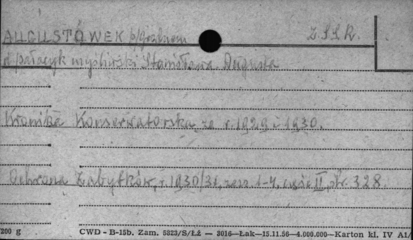 AUGUSTÓWEK b/Grodnem Z.S.S.R.
d. pałacyk myśliwski Stanisława Augusta
Kronika Konserwatorska za r. 1929 i 1930.
Ochrona Zabytków, r. 1930/31, zesz. 1-4, część II, str. 328.
200 g CWD - B-15b. Zam. 5823/S/Łż — 3016—Łak—15.11.56—4.000.000—Karton kl. IV A1/